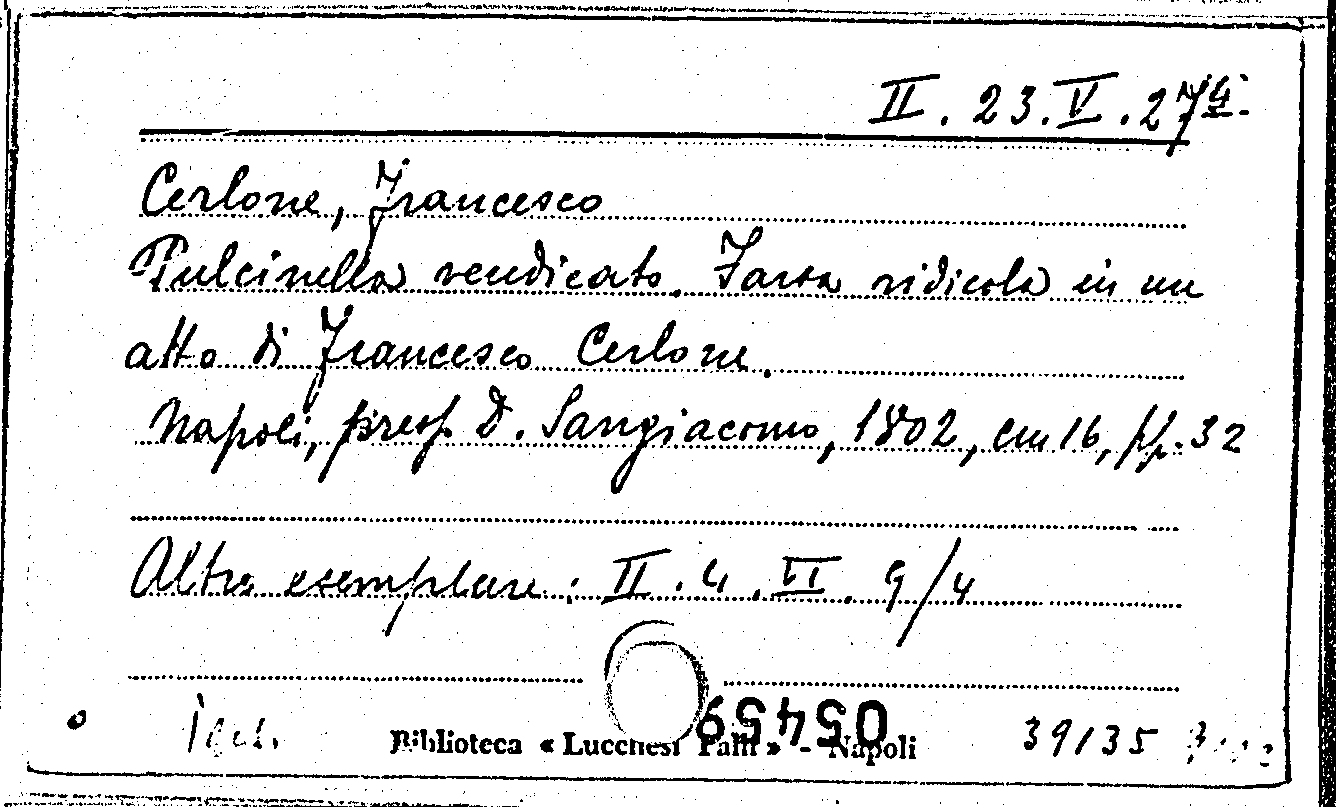 II. 23. V. 27⁴.
Cerlone, Francesco
Pulcinella vendicato. Farsa ridicola in un
atto di Francesco Cerlone.
Napoli, press. D. Sangiacomo, 1802, cm 16, pp. 32
Altro esemplare: II. 4. VI. 9/4
Biblioteca « Lucchesi Palli » - Napoli
05459
39135